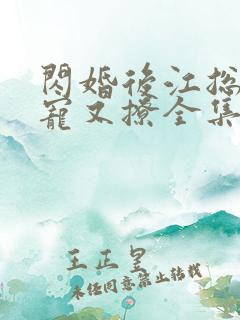 閃婚後江总
寵又撩全集
王正皇
未经同意禁止转载